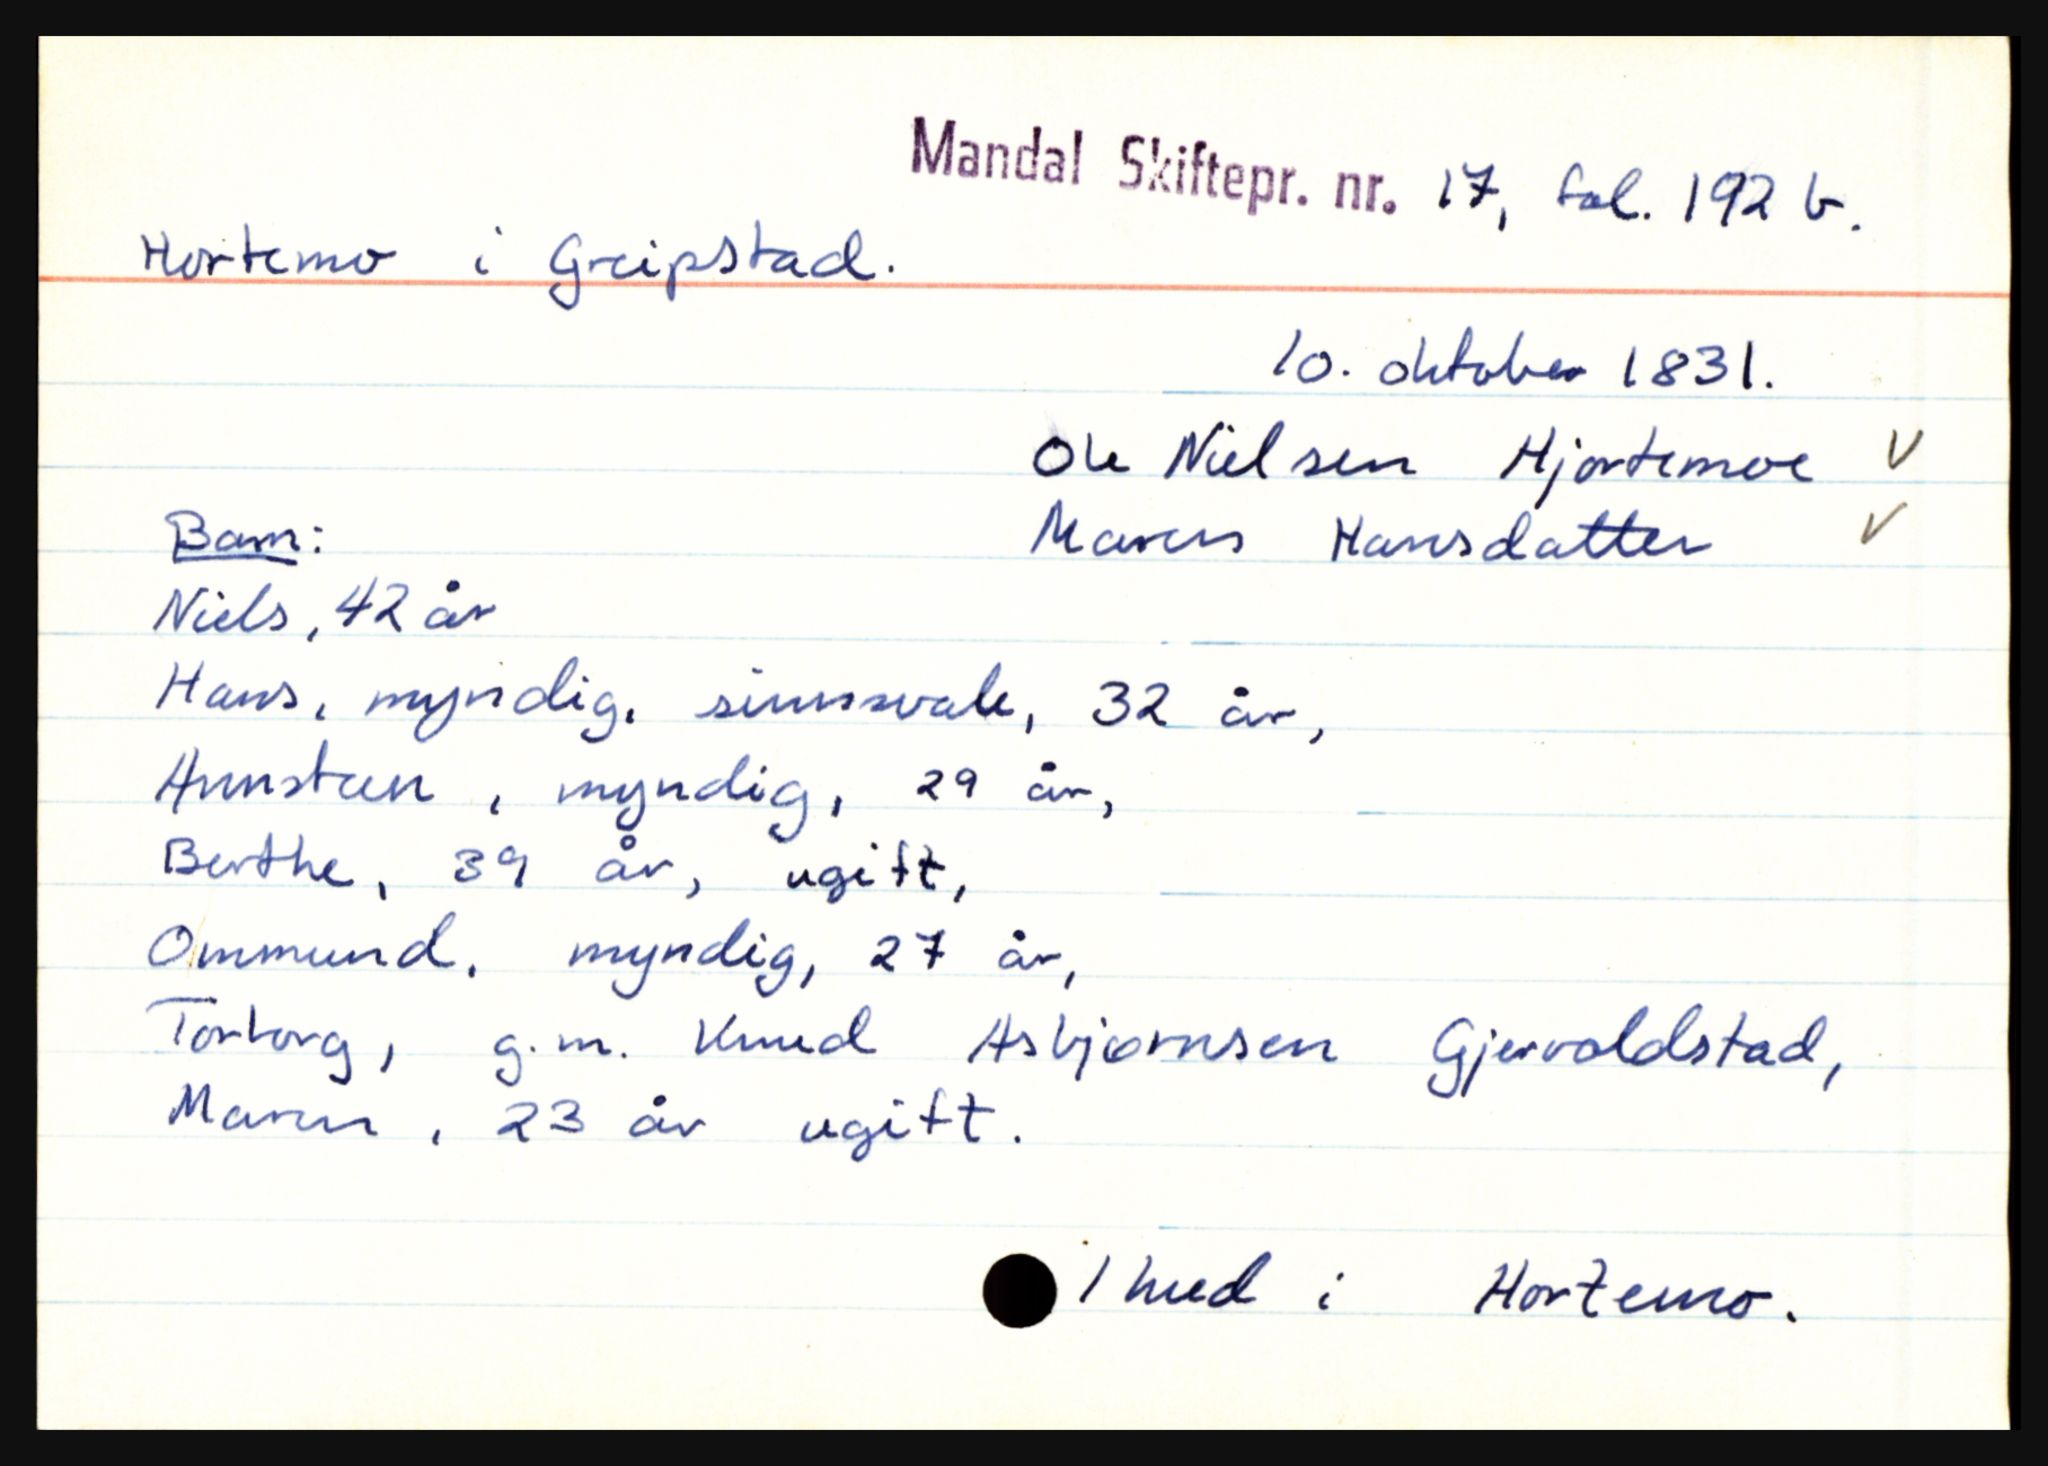 Mandal Skiftepr. nr. 17, fol. 192 b.
Hortemo i Greipstad.
10. oktober 1831.
Ole Nielsen Hjortemoe V
Maren Hansdatter V
Barn:
Niels, 42 år
Hans, myndig, sinnsvak, 32 år,
Annsteen, myndig, 29 år,
Berthe, 39 år, ugift,
Ommund, myndig, 27 år,
Torborg, g.m. Knud Asbjørnsen Gjervoldstad,
Maren, 23 år ugift.
1 hud i Hortemo.